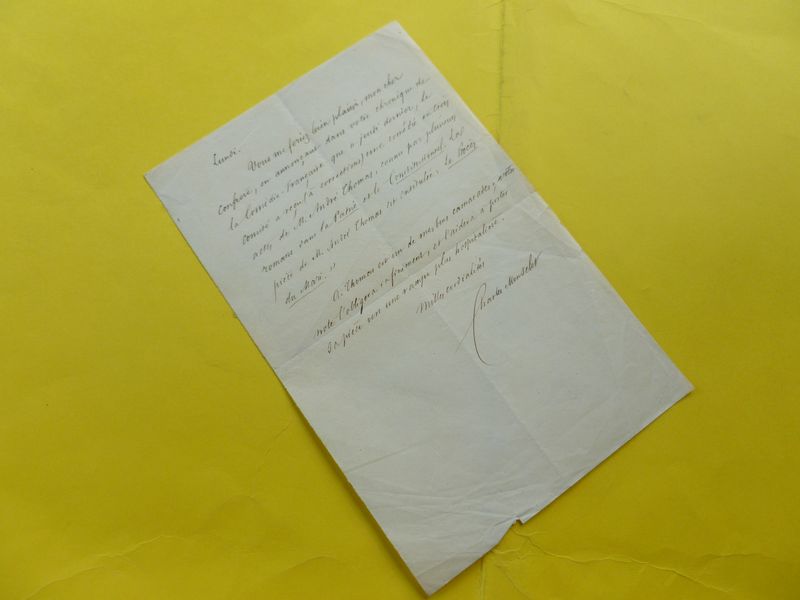 Lundi.
Vous me feriez bien plaisir, mon cher
confrère, en annonçant dans votre chronique que
la Comédie-Française a jeudi dernier, le
comité a reçu (à corrections) une comédie en trois
actes de M. André Thomas, connu par plusieurs
romans dans la Patrie et le Constitutionnel. La
pièce de M. André Thomas est intitulée: Le
du Mari. »
A. Thomas est un de mes bons camarades; votre
note l'obligera infiniment, et l'aidera à
sa pièce vers une plus hospitalière.
Mille cordialités
Charles Monselet